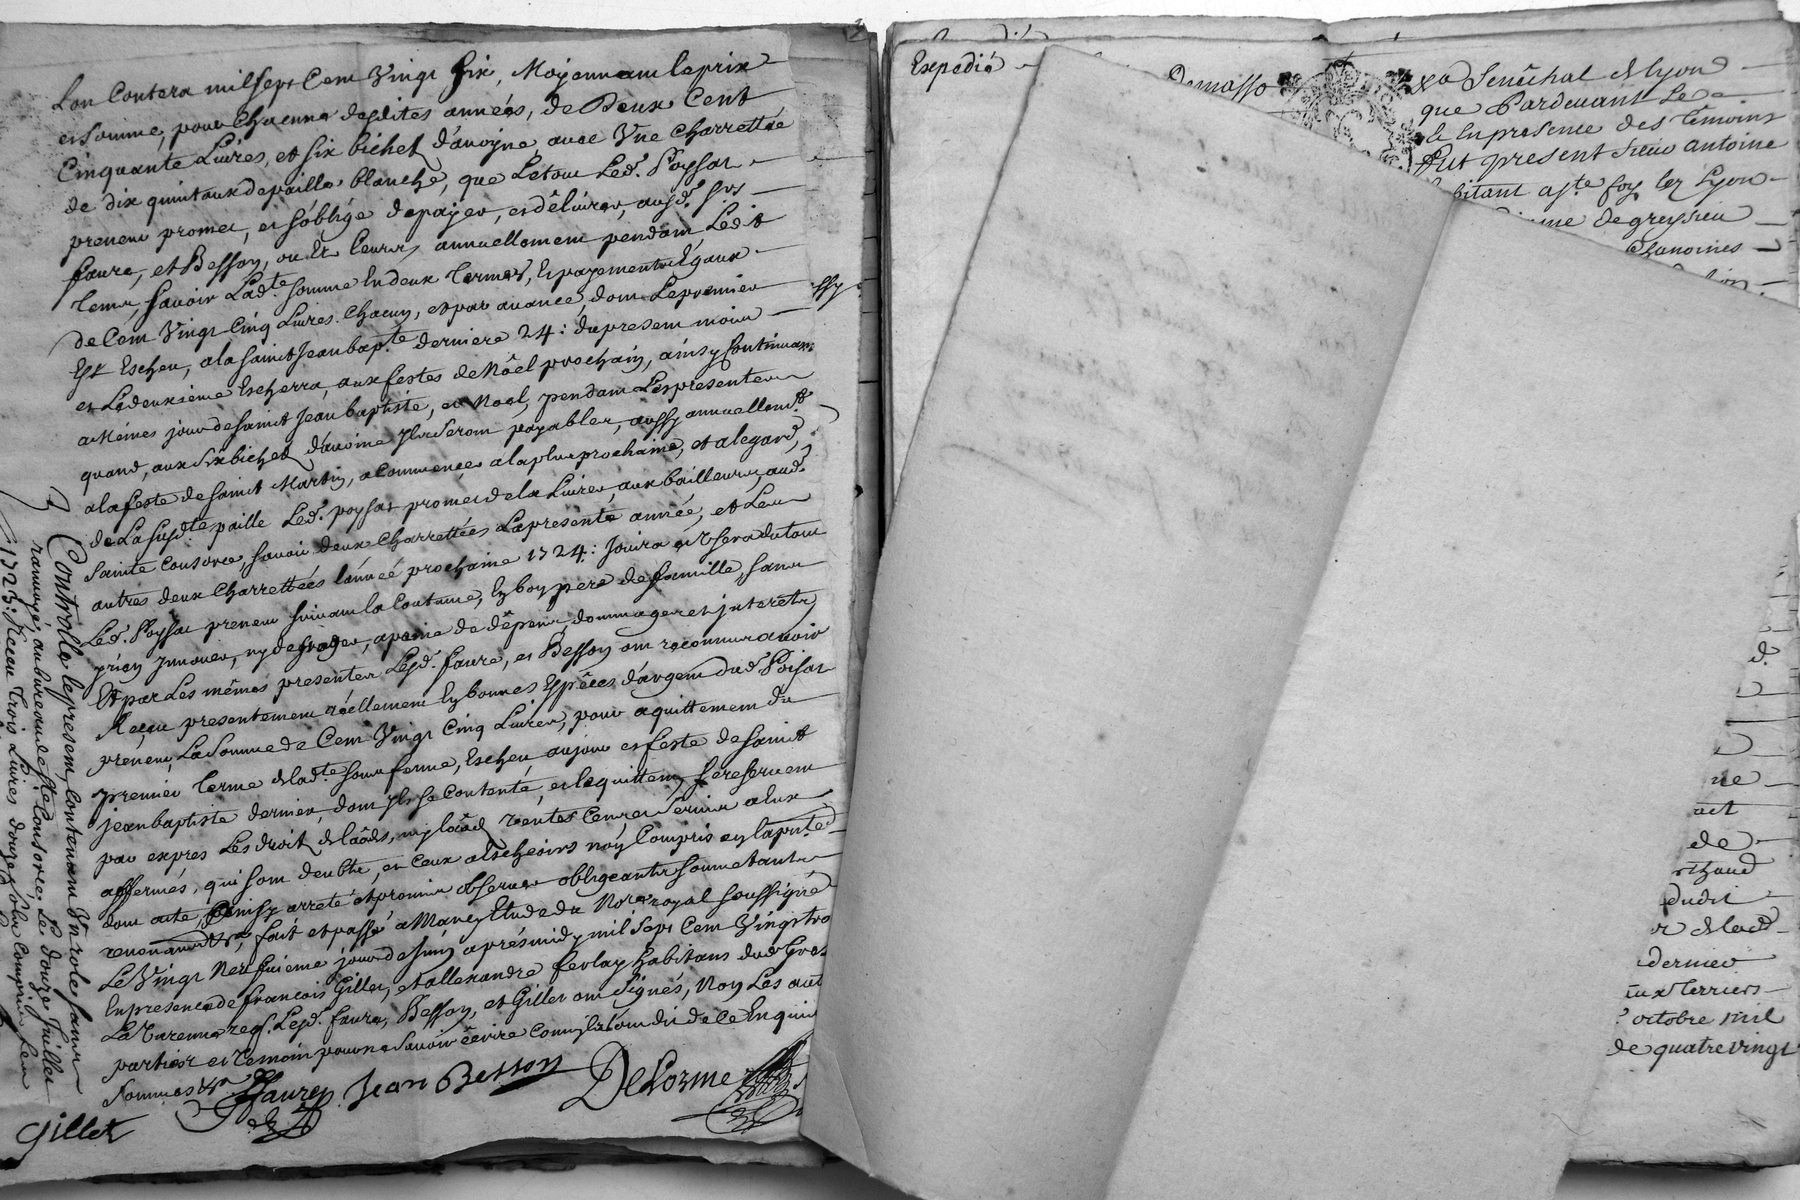 Lon Contera mil sept Cent Vingt six, Moyennant le prix
et somme, pour chacune desdites années, de Deux Cent
Cinquante Livres, et six bichets d'avoyne, avec Vne charrettée
de dix quintaux de paille blanche, que Letout Led. Poyssat
preneur promet, et s'oblige de payer, et délivrer, ausd. Srs
faure, et Besson, ou Et Leurs annuellement pendant Ledit
Temps, savoir Lad.te somme En deux Termes, Et payements Egaux
de Cent Vingt Cinq Livres chacun, et par avance, dont Lepremier
Est Escheu, a la saint Jean bapt.e derniere 24: dupresent mois
et Ledeuxieme Escherra, aux festes de Nôel prochain, ainsy Continuant
a Mêmes jours de saint Jean baptiste, et Noel, pendant Lespresentes
quand, aux six bichets d'avoine Ils seront payables, aussy annuellem.t
a la feste de saint Martin, a Commencer a la plus prochaine, et a legard,
de La susd.te paille Led. poyssat promet de la Livrer, aux bailleurs, aud.
Sainte Consorce, savoir deux Charrettées Lapresente année, et Les
autres deux Charrettées l'année prochaine 1724: Jouira et Vsera dutout
Led. Poyssat preneur suivant la Coutume, En bon pere de famille, sans
y rien Innover, ny degrader, a peine de dépens, dommages et interets,
Et par Les mêmes presentes Lesd. faure, et Besson ont reconnus avoir
Reçeu presentement réellement En bonnes Espêces d'argent dud. Poissat
preneur, La somme de Cent Vingt Cinq Livres, pour aquittement du
premier Terme de lad.te sous ferme, Escheu, aujour et feste de saint
jean baptiste dernier, dont Ils se Contente, et lequittent, se reservent
par expres Les droits de Laods, my laods rentes
affermés, qui sont deubs, et ceux a Escheoirs non Compris en la pnte
dont acte, ainsy arreté et promis observer obligeants soumetants
renonceants &a, fait et passé a Marcy Etude du No.re royal soussigné
Le Vingt Neufuieme jour de juin aprésmidy mil sept Cent Vingt tro
En presence de francois Gillet, et allexandre ferlay habitans dud. Gres
La Varenne Lesd. faure, Besson, et Gillet ont signés, Non Les aut
parties et Temoin pour ne Savoir écrire Comm'ils ont dit de ce Enquis
Sommes &a
Faure Jean Besson DeLorme
Gillet
Controllé le present, contenant Vn role sans
ranvoye, au bureau de Ste. Consorce Le Douze Juillet
1723: Receu Trois Livres douze sols
Expedié
Senêchal de Lyon
que Pardevant Le
& En presence des Témoins
Fut present sieur antoine
bitant a ste foy lez Lyon
de greysieu
Chanoines
d.
ne
de
dudit
dernier
aux Terriers
octobre mil
de quatrevingt